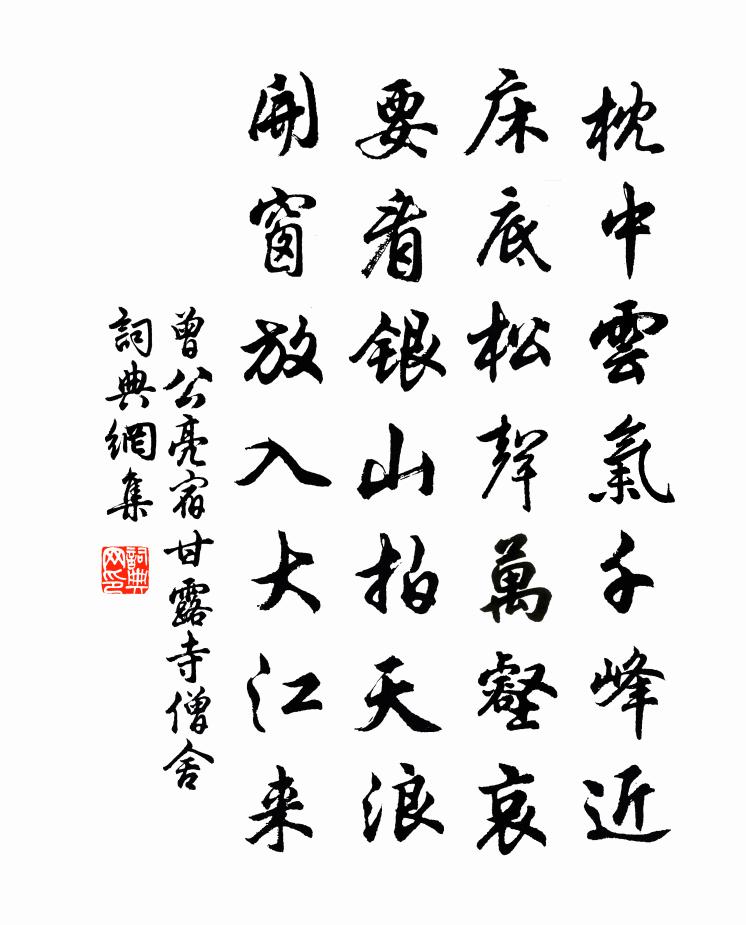 枕中雲氣千峰近
床底松聲萬壑哀
要看銀山拍天浪
開窗放入大江来
曾公亮宿甘露寺僧舍
詞典網集
詞典网印